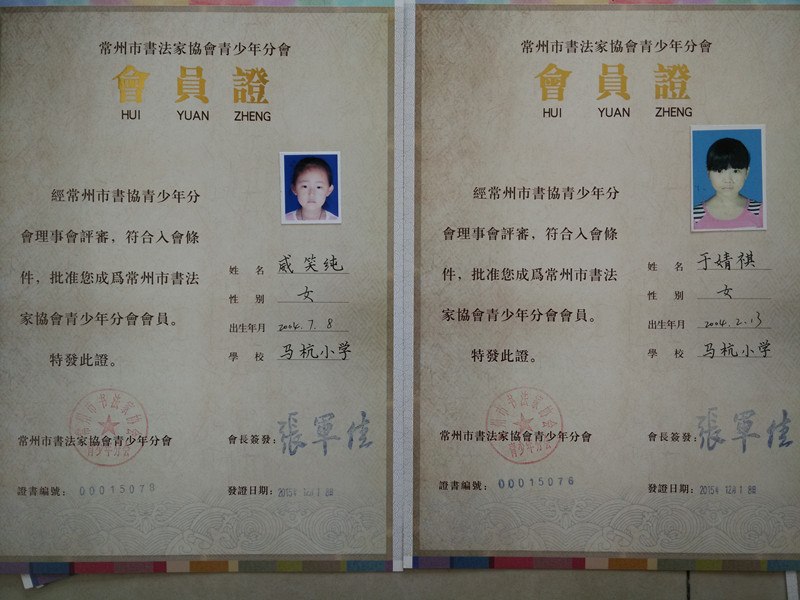 常州市書法家協會青少年分會
會員證
HUI YUAN ZHENG
經常州市書協青少年分
會理事會評審，符合入會條
件，批准您成爲常州市書法
家協會青少年分會會員。
特發此證。
姓 名 威笑纯
性 别 女
出生年月 2004.7.8
學 校 马杭小学
常州市书法家协会
青少年分会
常州市書法家協會青少年分會
會長簽發：張軍佳
證書編號：00015078
發證日期：2015年12月18日
常州市書法家協會青少年分會
會員證
HUI YUAN ZHENG
經常州市書協青少年分
會理事會評審，符合入會條
件，批准您成爲常州市書法
家協會青少年分會會員。
特發此證。
姓 名 于婧祺
性 别 女
出生年月 2004.2.13
學 校 马杭小学
常州市书法家协会
青少年分会
常州市書法家協會青少年分會
會長簽發：張軍佳
證書編號：00015076
發證日期：2015年12月18日